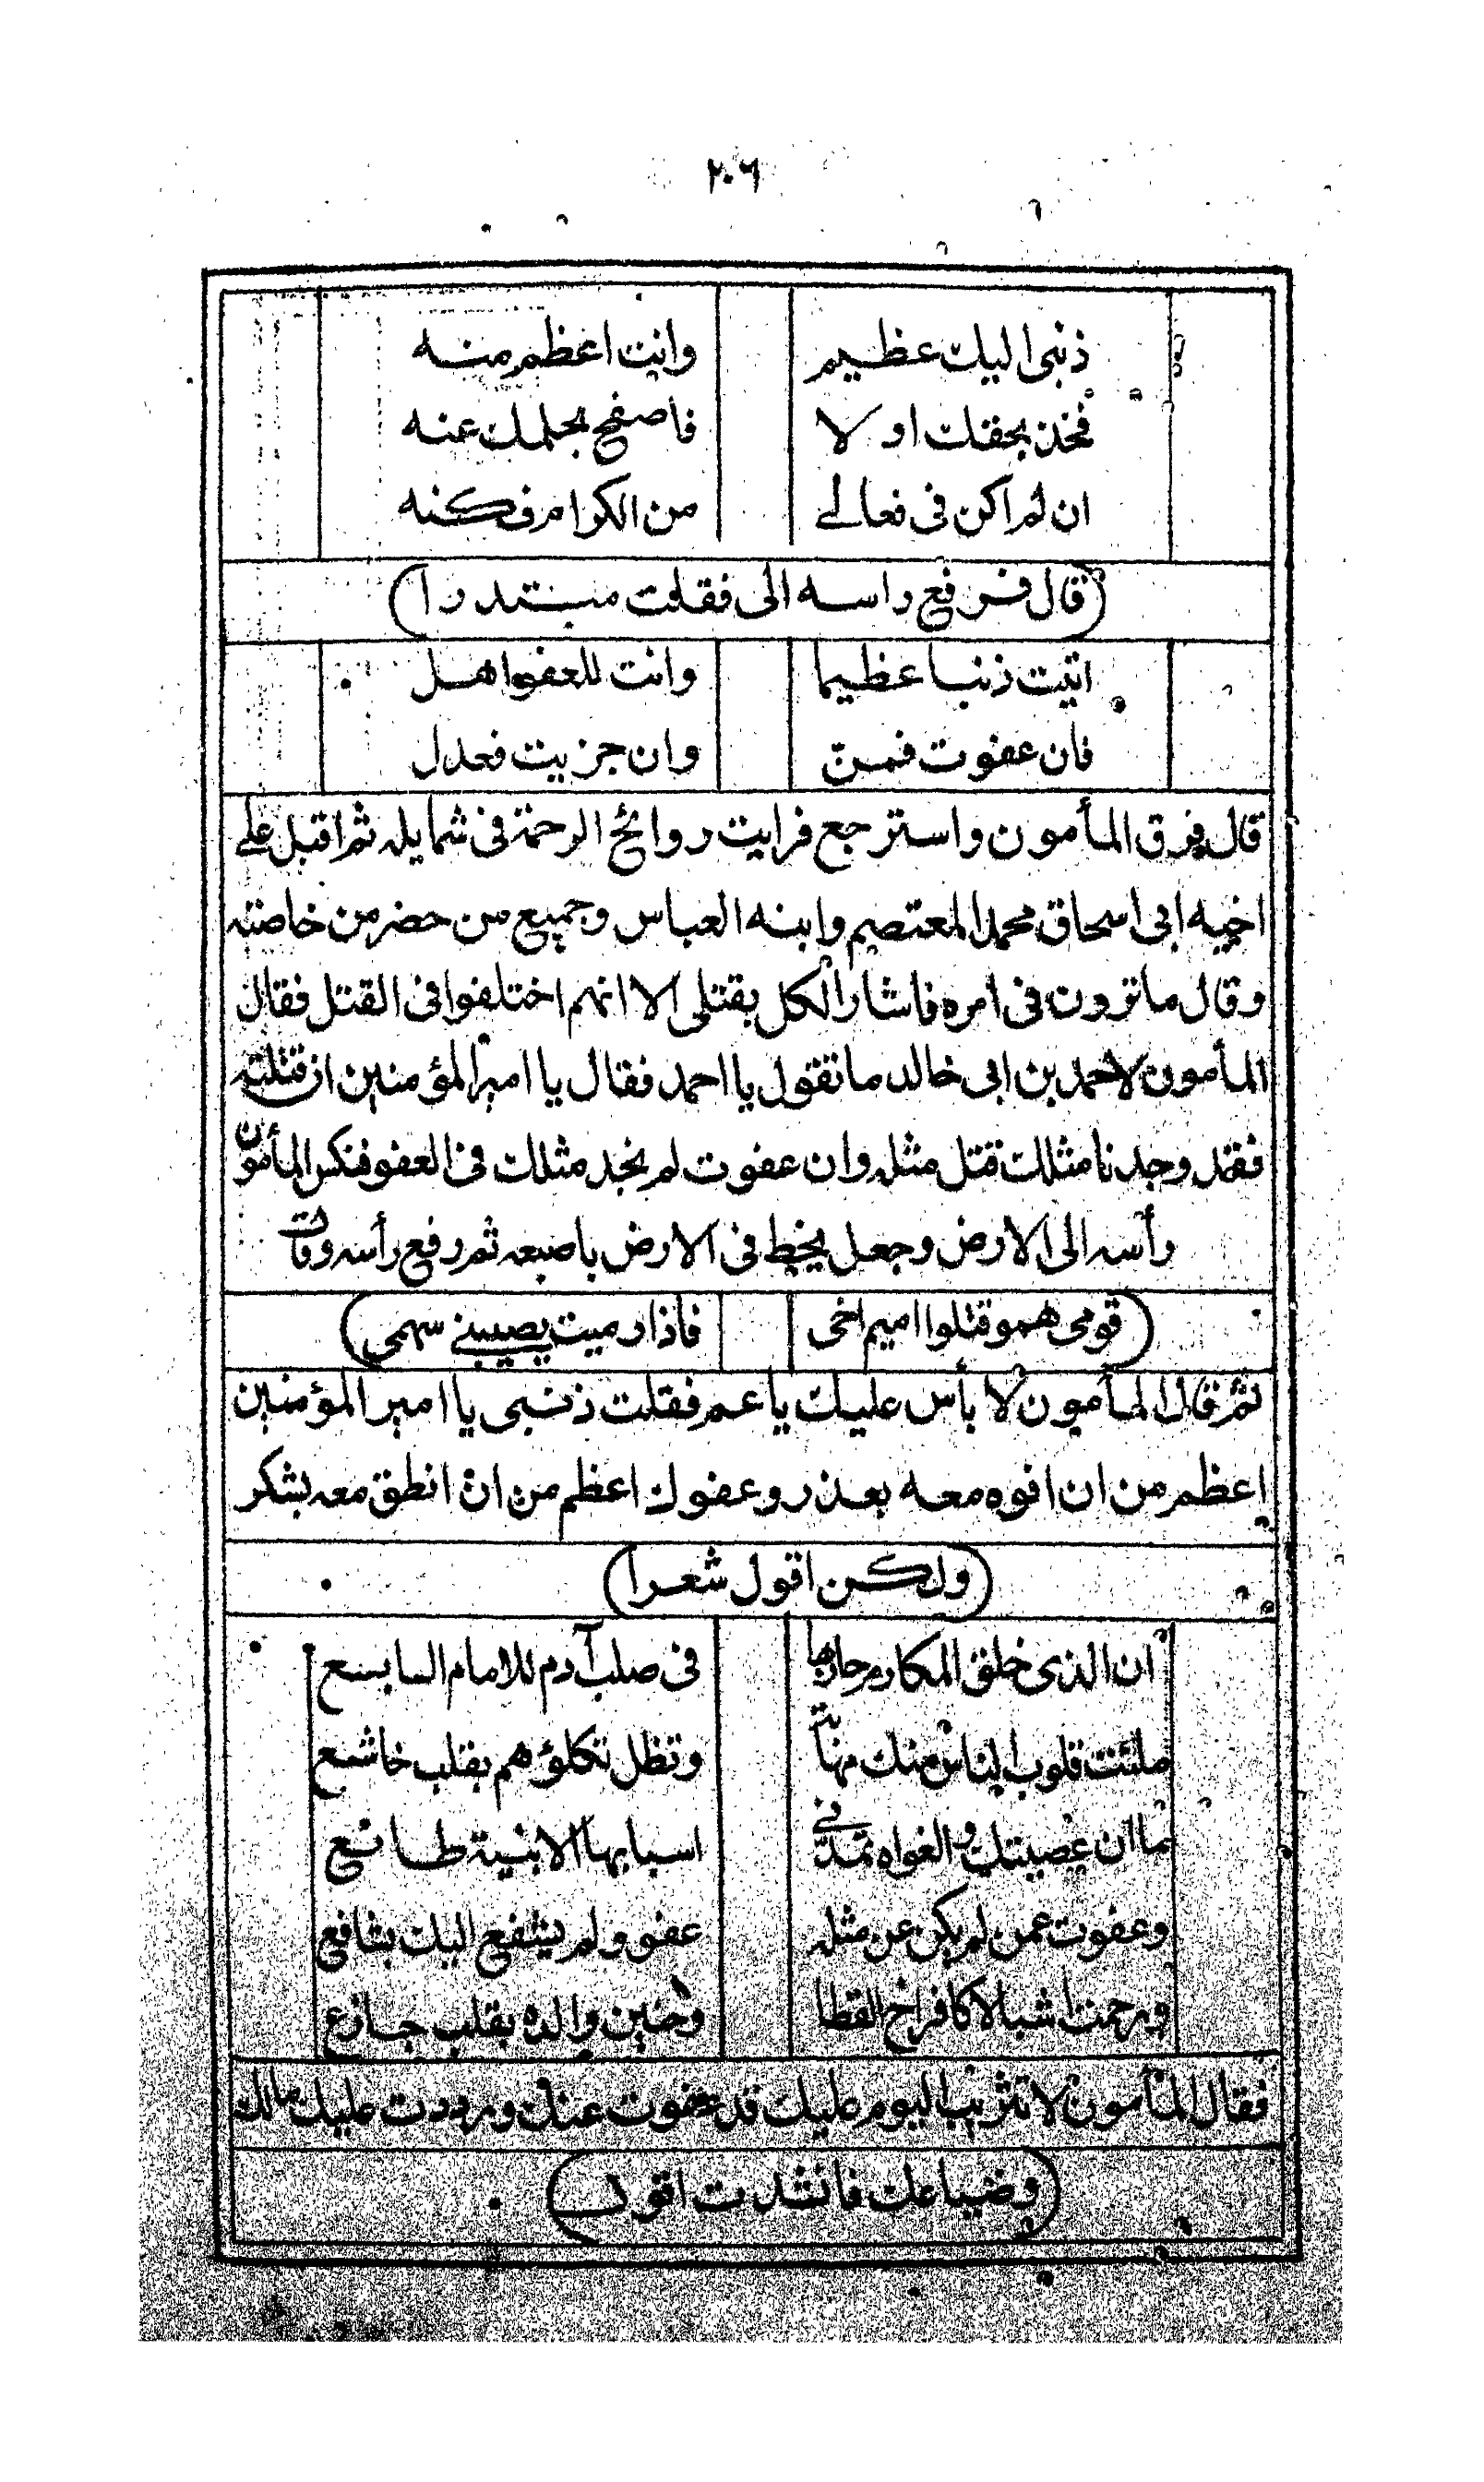 ٢٠٦
ذنبى اليك عظيم وانت اعظم منه
فخذ بحقك او لا فاصفح بحلمك عنه
ان لم اكن فى فعالے من الكرام فكنه
(قال فرفع راسه الى فقلت مبتدرا)
اتيت ذنبا عظيما وانت للعفو اهل
فان عفوت فمنّ وان جزيت فعدل
قال فرق المأمون واسترجع فرايت روائح الرحمة فى شمايله ثم اقبل على
اخيه ابى اسحاق محمد المعتصم وابنه العباس وجميع من حضر من خاصته
وقال ما ترون فى امره فاشار الكل بقتلى الا انهم اختلفوا فى القتل فقال
المأمون لاحمد بن ابى خالد ما تقول يا احمد فقال يا امير المؤمنين ان قتلته
فقد وجدنا مثلك قتل مثله وان عفوت لم نجد مثلك فى العفو فنكس المأمون
رأسه الى الارض وجعل يخط فى الارض باصبعه ثم رفع رأسه وقال
(قومى همو قتلوا اميم اخى فاذا رميت يصيبنے سهمى)
ثم قال المأمون لا بأس عليك يا عم فقلت ذنبى يا امير المؤمنين
اعظم من ان افوه معه بعذر وعفوك اعظم من ان انطق معه بشكر
(ولكن اقول شعرا)
ان الذى خلق المكارم حازها فى صلب آدم للامام السابع
ملئت قلوب الناس منك مهابة وتظل تكلؤهم بقلب خاشع
ما ان عصيتك والغواه تمدّنى اسبابها الا بنية طائع
وعفوت عمن لم يكن عن مثله عفو ولم يشفع اليك بشافع
ورحمت اشبالا كافراخ القطا وحنين والدة بقلب جازع
فقال المأمون لا تثريب اليوم عليك قد عفوت عنك ورددت عليك مالك
(وضياعك فانشدت اقول)